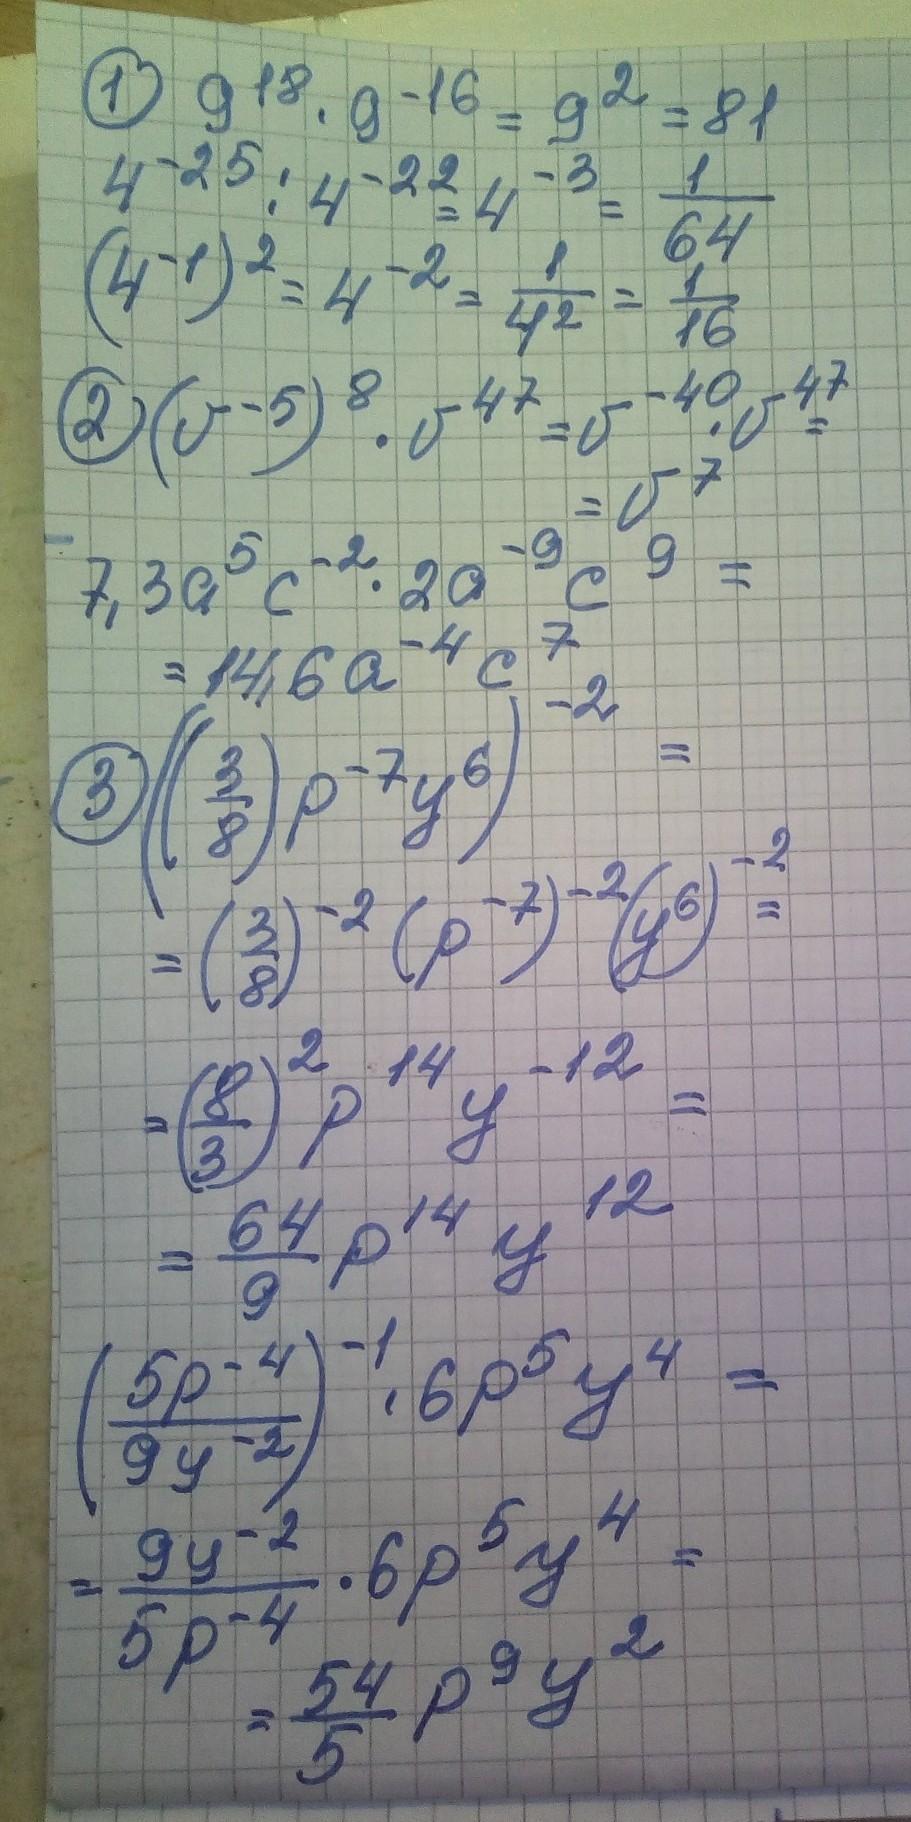 ① 9¹⁸ · 9⁻¹⁶ = 9² = 81
4⁻²⁵ : 4⁻²² = 4⁻³ = 1/64
(4⁻¹)² = 4⁻² = 1/4² = 1/16
② (v⁻⁵)⁸ · v⁴⁷ = v⁻⁴⁰ · v⁴⁷ =
= v⁷
7,3a⁵c⁻² · 2a⁻⁹c⁹ =
= 14,6a⁻⁴c⁷
③ ((3/8)p⁻⁷y⁶)⁻² =
= (3/8)⁻² (p⁻⁷)⁻² (y⁶)⁻² =
= (8/3)² p¹⁴ y⁻¹² =
= 64/9 p¹⁴ y¹²
(5p⁻⁴/9y⁻²)⁻¹ · 6p⁵y⁴ =
= 9y⁻²/5p⁻⁴ · 6p⁵y⁴ =
= 54/5 p⁹y²